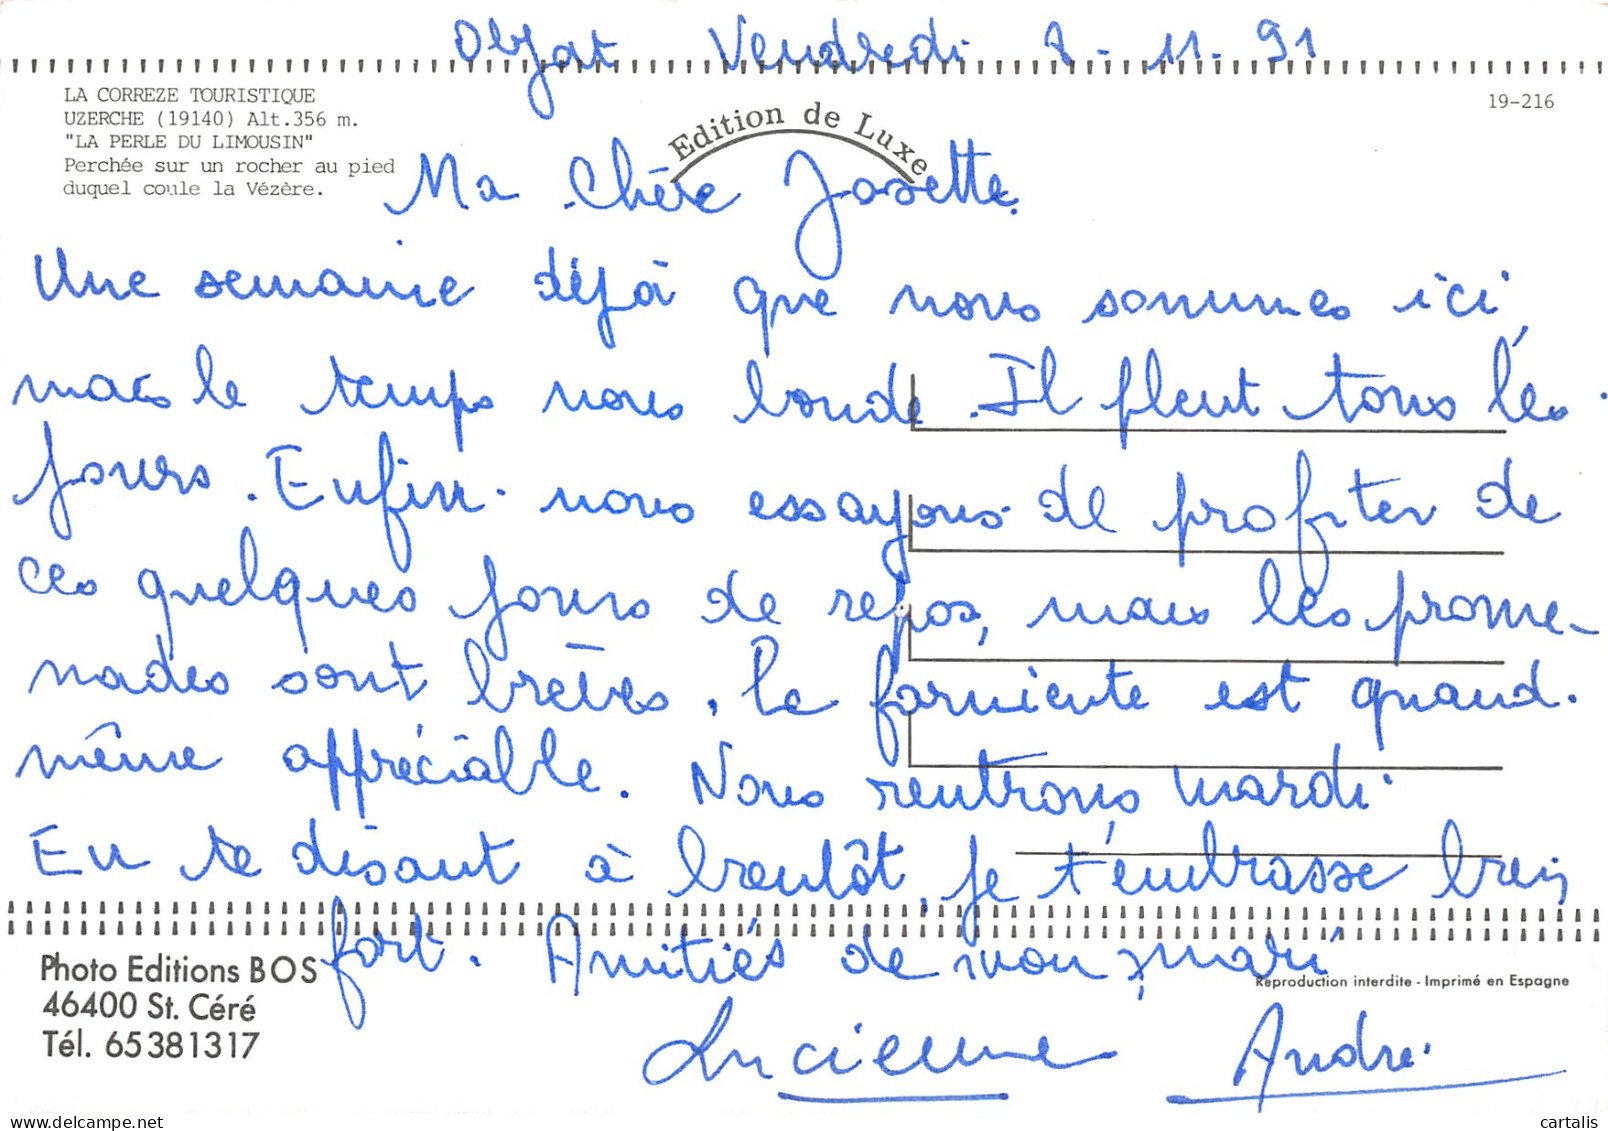 Objat Vendredi 8-11-91
LA CORREZE TOURISTIQUE
UZERCHE (19140) Alt.356 m.
"LA PERLE DU LIMOUSIN"
Perchée sur un rocher au pied
duquel coule la Vézère.
Edition de Luxe
19-216
Ma Chère Josette.
Une semaine déjà que nous sommes ici,
mais le temps nous boude. Il pleut tous les
jours. Enfin nous essayons de profiter de
ces quelques jours de repos, mais les prome-
nades sont brèves. Le farniente est quand
même appréciable. Nous rentrons mardi.
En te disant à bientôt, je t'embrasse bien
fort. Amitiés de mon mari
Lucienne André
Photo Editions BOS
46400 St. Céré
Tél. 65381317
Reproduction interdite - Imprimé en Espagne
cartalis